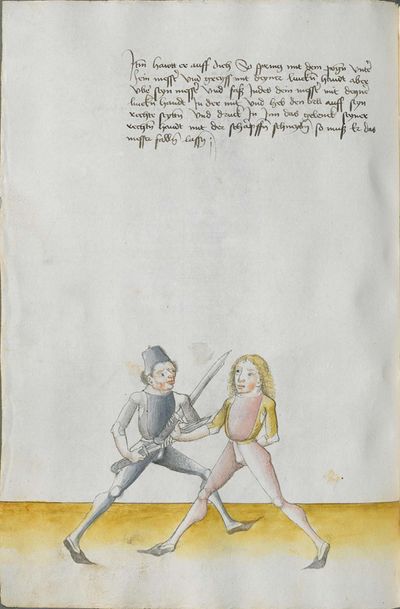 Itm̄ hawt er auff dich So spring mit dem pogn̄ vnter
sein messr̄ Vnd greyff mit deyner linckn̄ handt aber
vbr̄ seyn messr̄ Vnd faß Indes dein messr̄ mit deyner
linckn̄ handt In der mit Vnd heb den auff seyn
rechte seyttn̄ Vnd druck Im In das gelenck seyner
rechtn̄ handt mit der scharpffn̄ schneydn̄ so muß Er das
messer falln̄ lassn̄